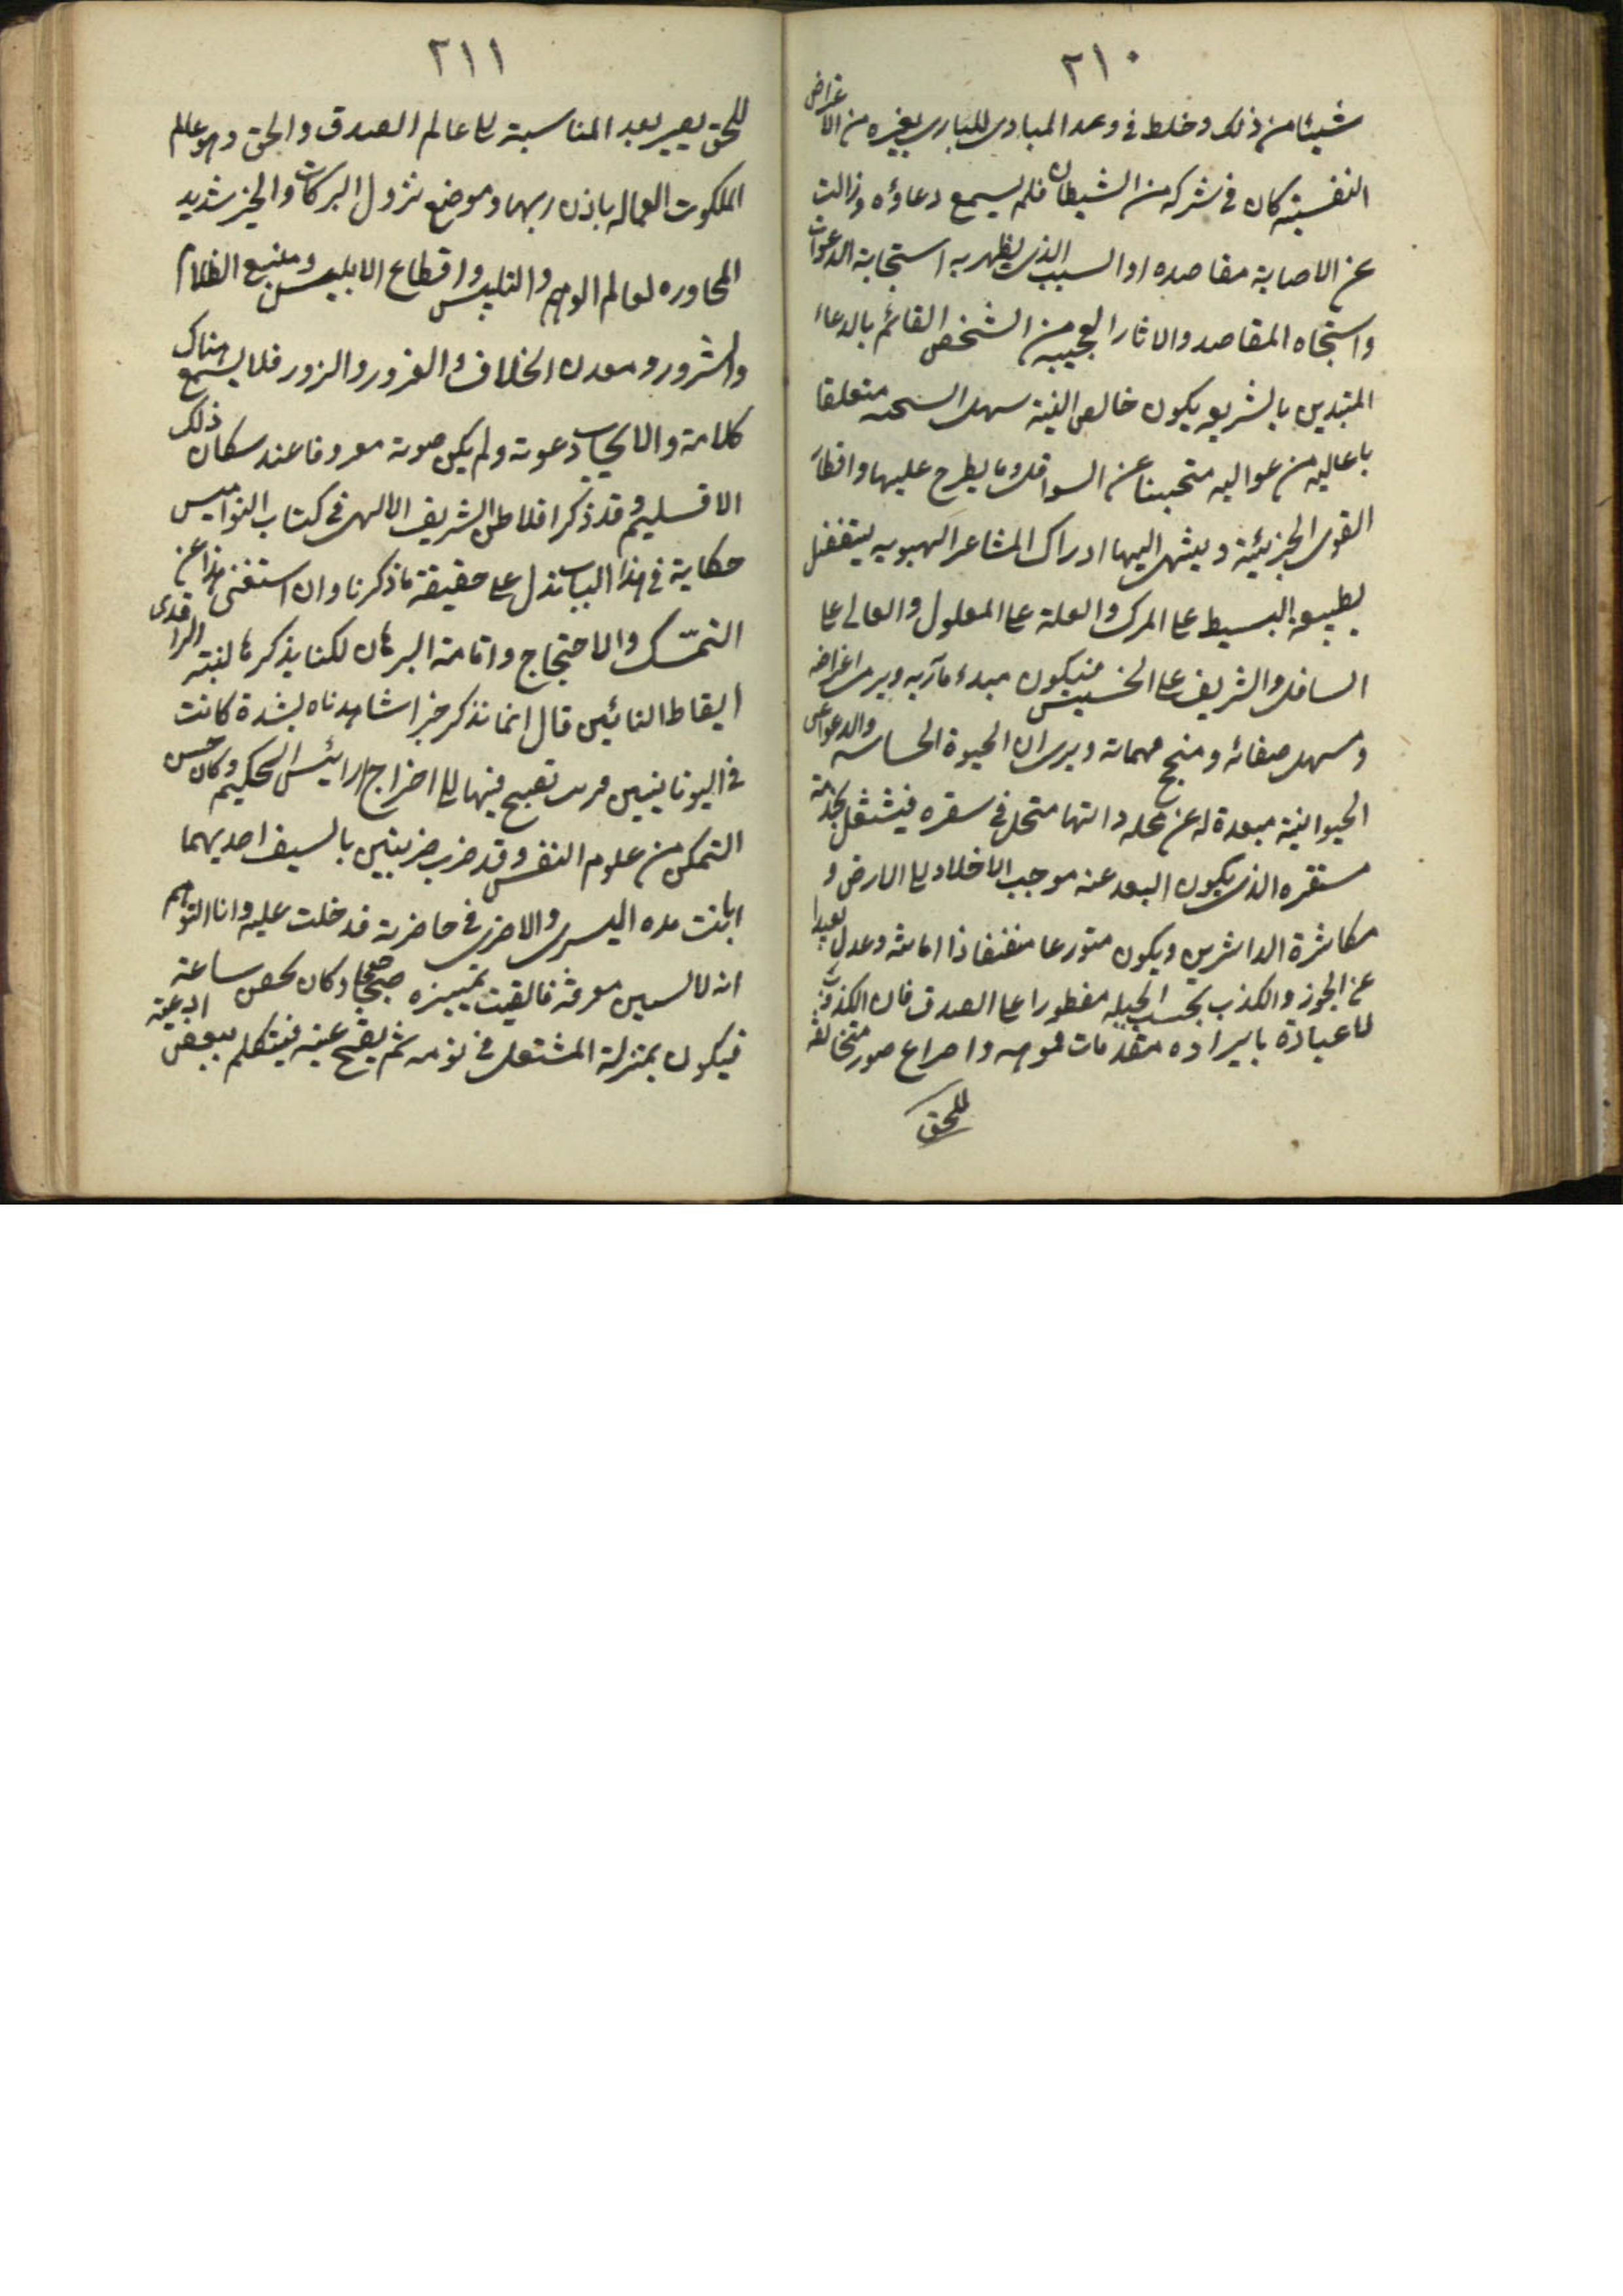 ٢١٠
شيئا من ذلك وخلط فى وعد المبادى للبارى بغيره من الاغراض
النفسية كان فى شركه من الشيطان فلم يسمع دعاؤه وزالت
عن الاصابة مقاصده اذ السبب الذى يظهر به استجابة الدعوات
واستنجاه المقاصد والاثار العجيبه من الشخص القائم بالدعاء
المتدين بالشريعه يكون خالص النية سهل متعلقا
باعاليه من عواليه متجنبا عن السوافل وما يطرح عليها
القوى الجزئية وينتهى اليها ادراك المشاعر
بطبيعه البسيط على المركب والعلة على المعلول والعالى على
السافل والشريف على الخسيس فيكون مبدء مآربه ويرى اغراضه
ومسهل صفاته ومنجح مهماته ويرى ان الحيوة الحساسه والدواعى
الحيوانية مبعدة له عن محله فى سفره فيشتغل بخدمة
مستقره الذى يكون البعد عنه موجب الاخلاد الى الارض و
مكاثرة الداثرين ويكون متورعا ذا امانة وعدل بعيدا
عن الجور والكذب بحسب الجبله مفطورا على الصدق فان الكذوب
باعيادة بايراده مقدمات مموهه واختراع صور متخالفه
للحق
٢١١
للحق يصير بعيد المناسبة الى عالم الصدق والحق وهو عالم
الملكوت العماله باذن ربها وموضع نزول البركات والخير شديد
المجاوره لعالم الوهم والتلبيس واقطاع الابليس ومنبع الظلام
والشرور ومعدن الخلاف والغرور والزور فلا يسمع هناك
كلامه ولا يجاب دعوته ولم يكن صوته معروفا عند سكان ذلك
الاقليم وقد ذكر افلاطن الشريف الالهى فى كتاب النواميس
حكاية فى هذا الباب تدل على حقيقة ما ذكرنا وان استغنى هذا عن
التمسّك والاحتجاج واقامة البرهان لكنا نذكرها لننبه الراقدى
ايقاظ النائمين قال انما نذكر خبرا شاهدناه بشدة كانت
فى اليونانيين اخراج ارائيس الحكيم وكان حسن
التمكن من علوم النفس وقد ضرب ضربتين بالسيف احديهما
ابانت يده اليسرى والاخرى فى خاصرته فدخلت عليه وانا اتوهم
انه لا يستبين معرفة فالقيت تمييزه صحيحا وكان ساعة
فيكون بمنزلة المشتغل فى نومه ثم يفتح عينه فيتكلم ببعض الادعية